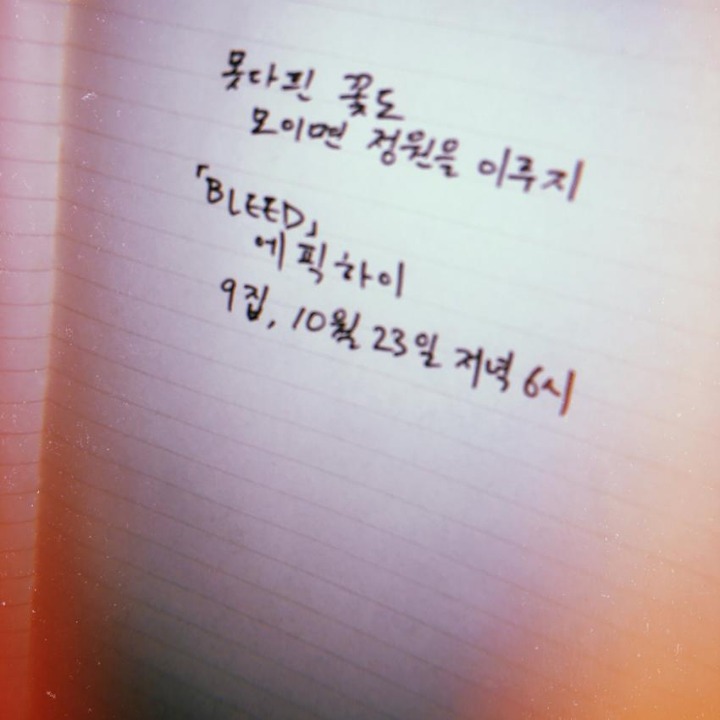 못다핀 꽃도
모이면 정원을 이루지
「BLEED」
에픽하이
9집, 10월 23일 저녁 6시